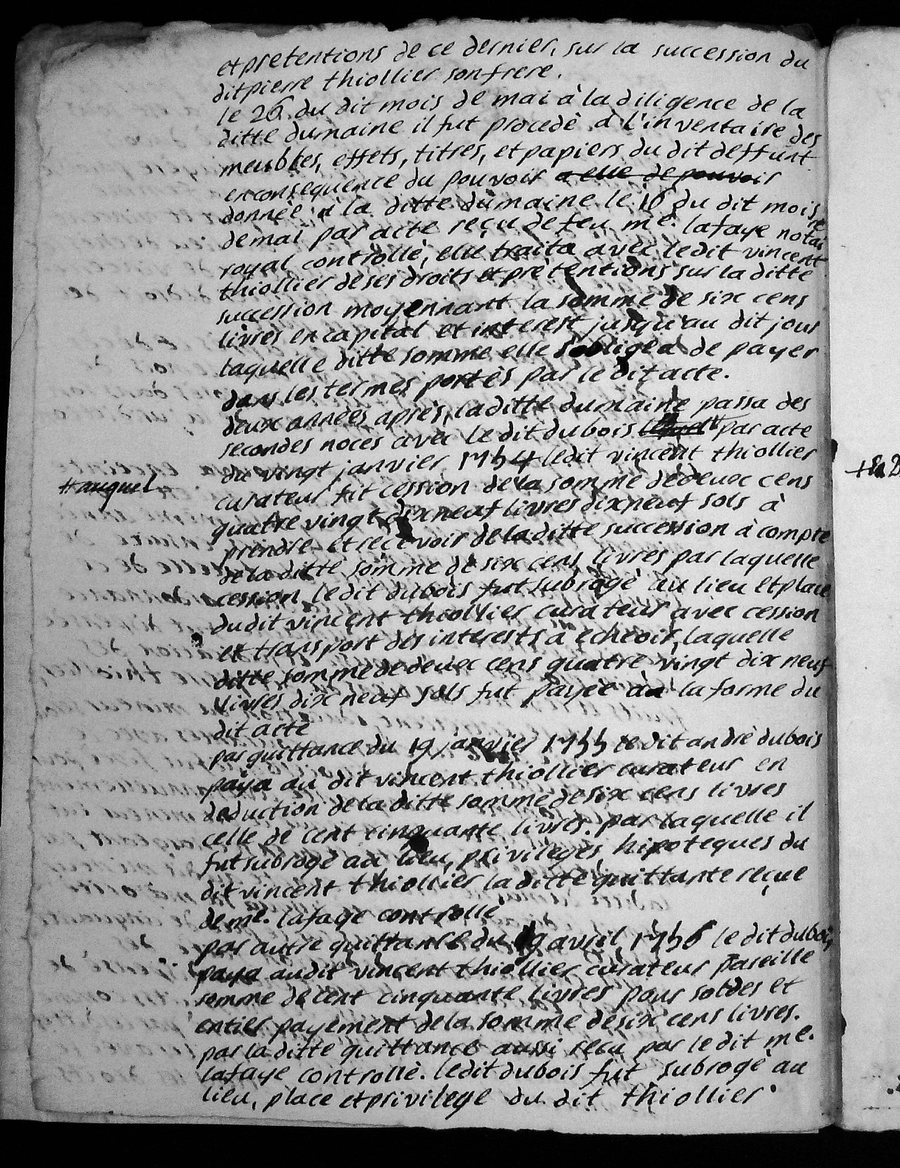 et pretentions de ce dernier, sur la succession du
dit pierre thiollier son frere.
le 26. du dit mois de mai à la diligence de la
ditte dumaine il fut procedè à l'inventaire des
meubles, effets, titres, et papiers du dit deffunt
en consequence du pouvoir a elle de pouvoir
donnée à la ditte dumaine le 16 du dit mois
de mai par acte reçu de feu me. lafaye notai re
royal controllè, elle traita avec ledit vincent
thiollier de ses droits et pretentions sur la ditte
succession moyennant la somme de six cens
livres en capital et interest jusqu'au dit jour
laquelle ditte somme elle s'obligea de payer
dans les termes portès par le dit acte.
deux annèes après, la ditte dumaine passa des
secondes noces avec le dit dubois et par acte
du vingt janvier 1754 ledit vincent thiollier
+ auquel
curateur fit cession de la somme de deuec cens
quatre vingt dix neuf livres dix neuf sols à
prendre et recevoir de la ditte succession à compte
de la ditte somme de six cens livres par laquelle
cession ledit dubois fut subrogè au lieu et place
dudit vincent thiollier curateur avec cession
et transport des interests à echeoir, laquelle
ditte somme de deuec cens quatre vingt dix neuf
livres dix neuf sols fut payèe à la forme du
dit acte
par quittance du 19 janvier 1755 le dit andrè dubois
paya au dit vincent thiollier curateur en
deduction de la ditte somme de six cens livres
celle de cent cinquante livres, par laquelle il
fut subrogè au lieu, privileges hipoteques du
dit vincent thiollier la ditte quittante reçue
de me. lafaye controllè
par autre quittance du 19 avril 1756 le dit dubois
paya audit vincent thiollier curateur pareille
somme de cent cinquante livres pour soldes et
entier payement de la somme de six cens livres.
par la ditte quittance aussi recu par le dit me.
lafaye controllè. ledit dubois fut subrogè au
lieu, place et privilege du dit thiollier.